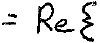 = Re{